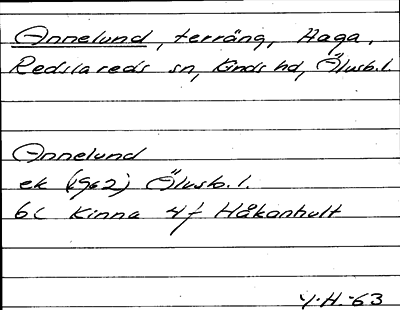 Annelund, terräng, Haga,
Redslareds sn, Kinds hd, Älvsb.l.
Annelund
ek (1962) Älvsb.l.
6C Kinna 4f Håkanhult
Y.H.-63